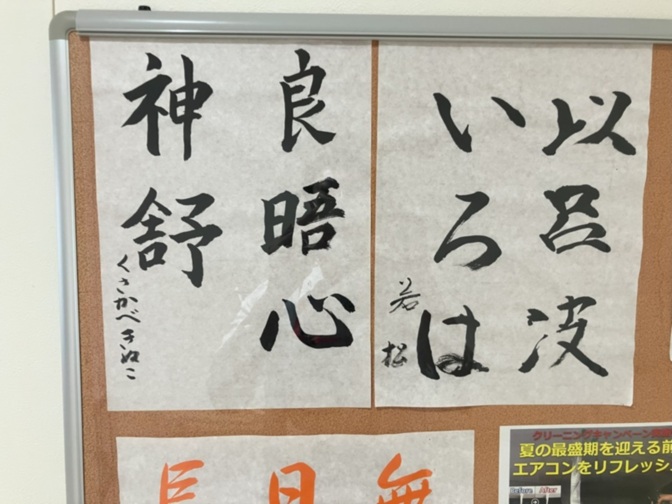 以呂波
いろは
若松
良晤心
神舒
くさかべきぬこ
クリーニングキャンペーン
夏の最盛期を迎える前
エアコンをリフレッシュ
無
月